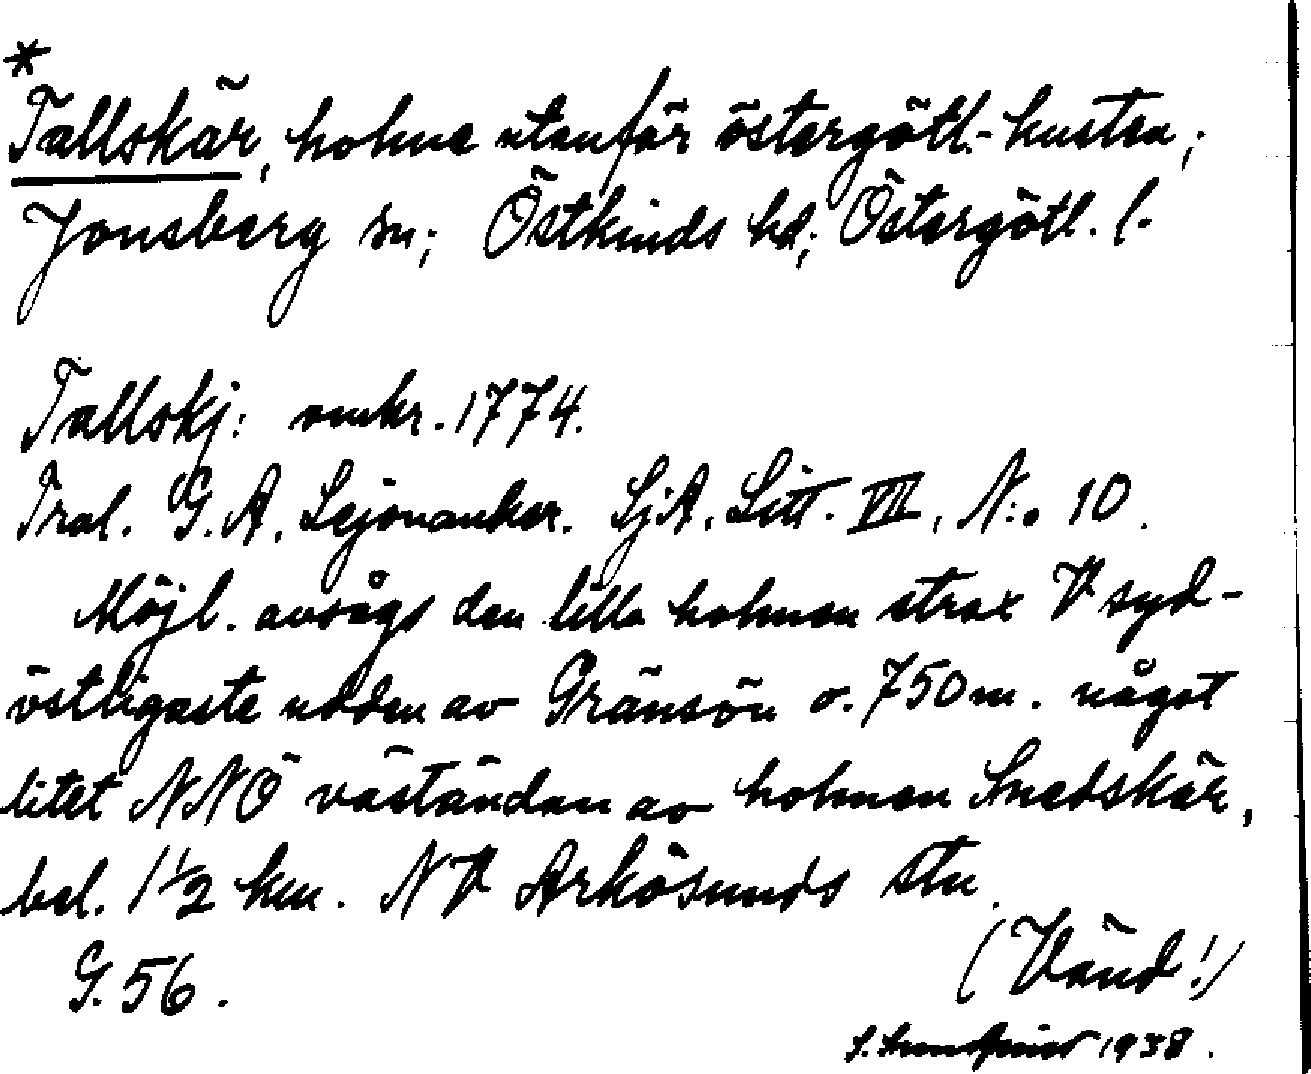 *
Tallskär, holme utanför östergötl.-kusten;
Jonsberg sn; Östkinds hd; Östergötl. l.
Tallskj: omkr. 1774.
Tral. G. A. Lejonanker. SjA. Litt. VII, N:o 10.
Möjl. avsågs den lilla holmen strax V syd-
östligaste udden av Gränsön o. 750 m. något
litet NNÖ väständan av holmen Snedskär,
bel. 1 1/2 km. NV Arkösunds stn.
G. 56. (Vänd!)
S. 1938.